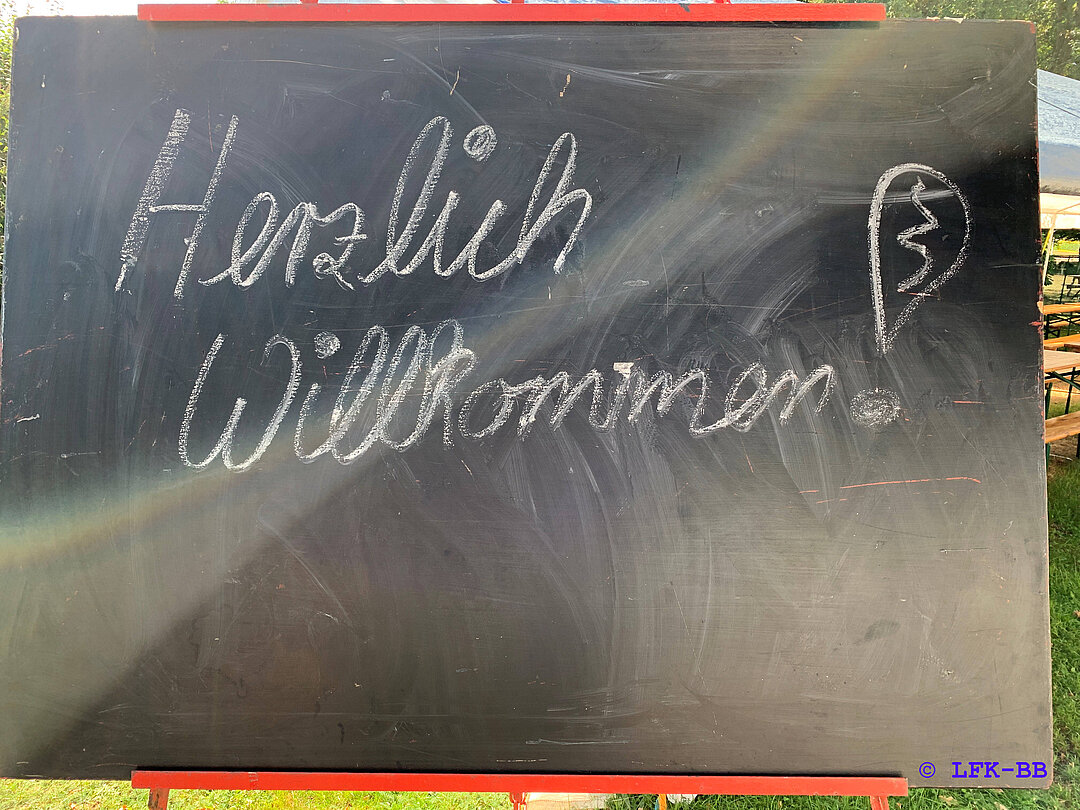 Herzlich
Willkommen!
© LFK-BB